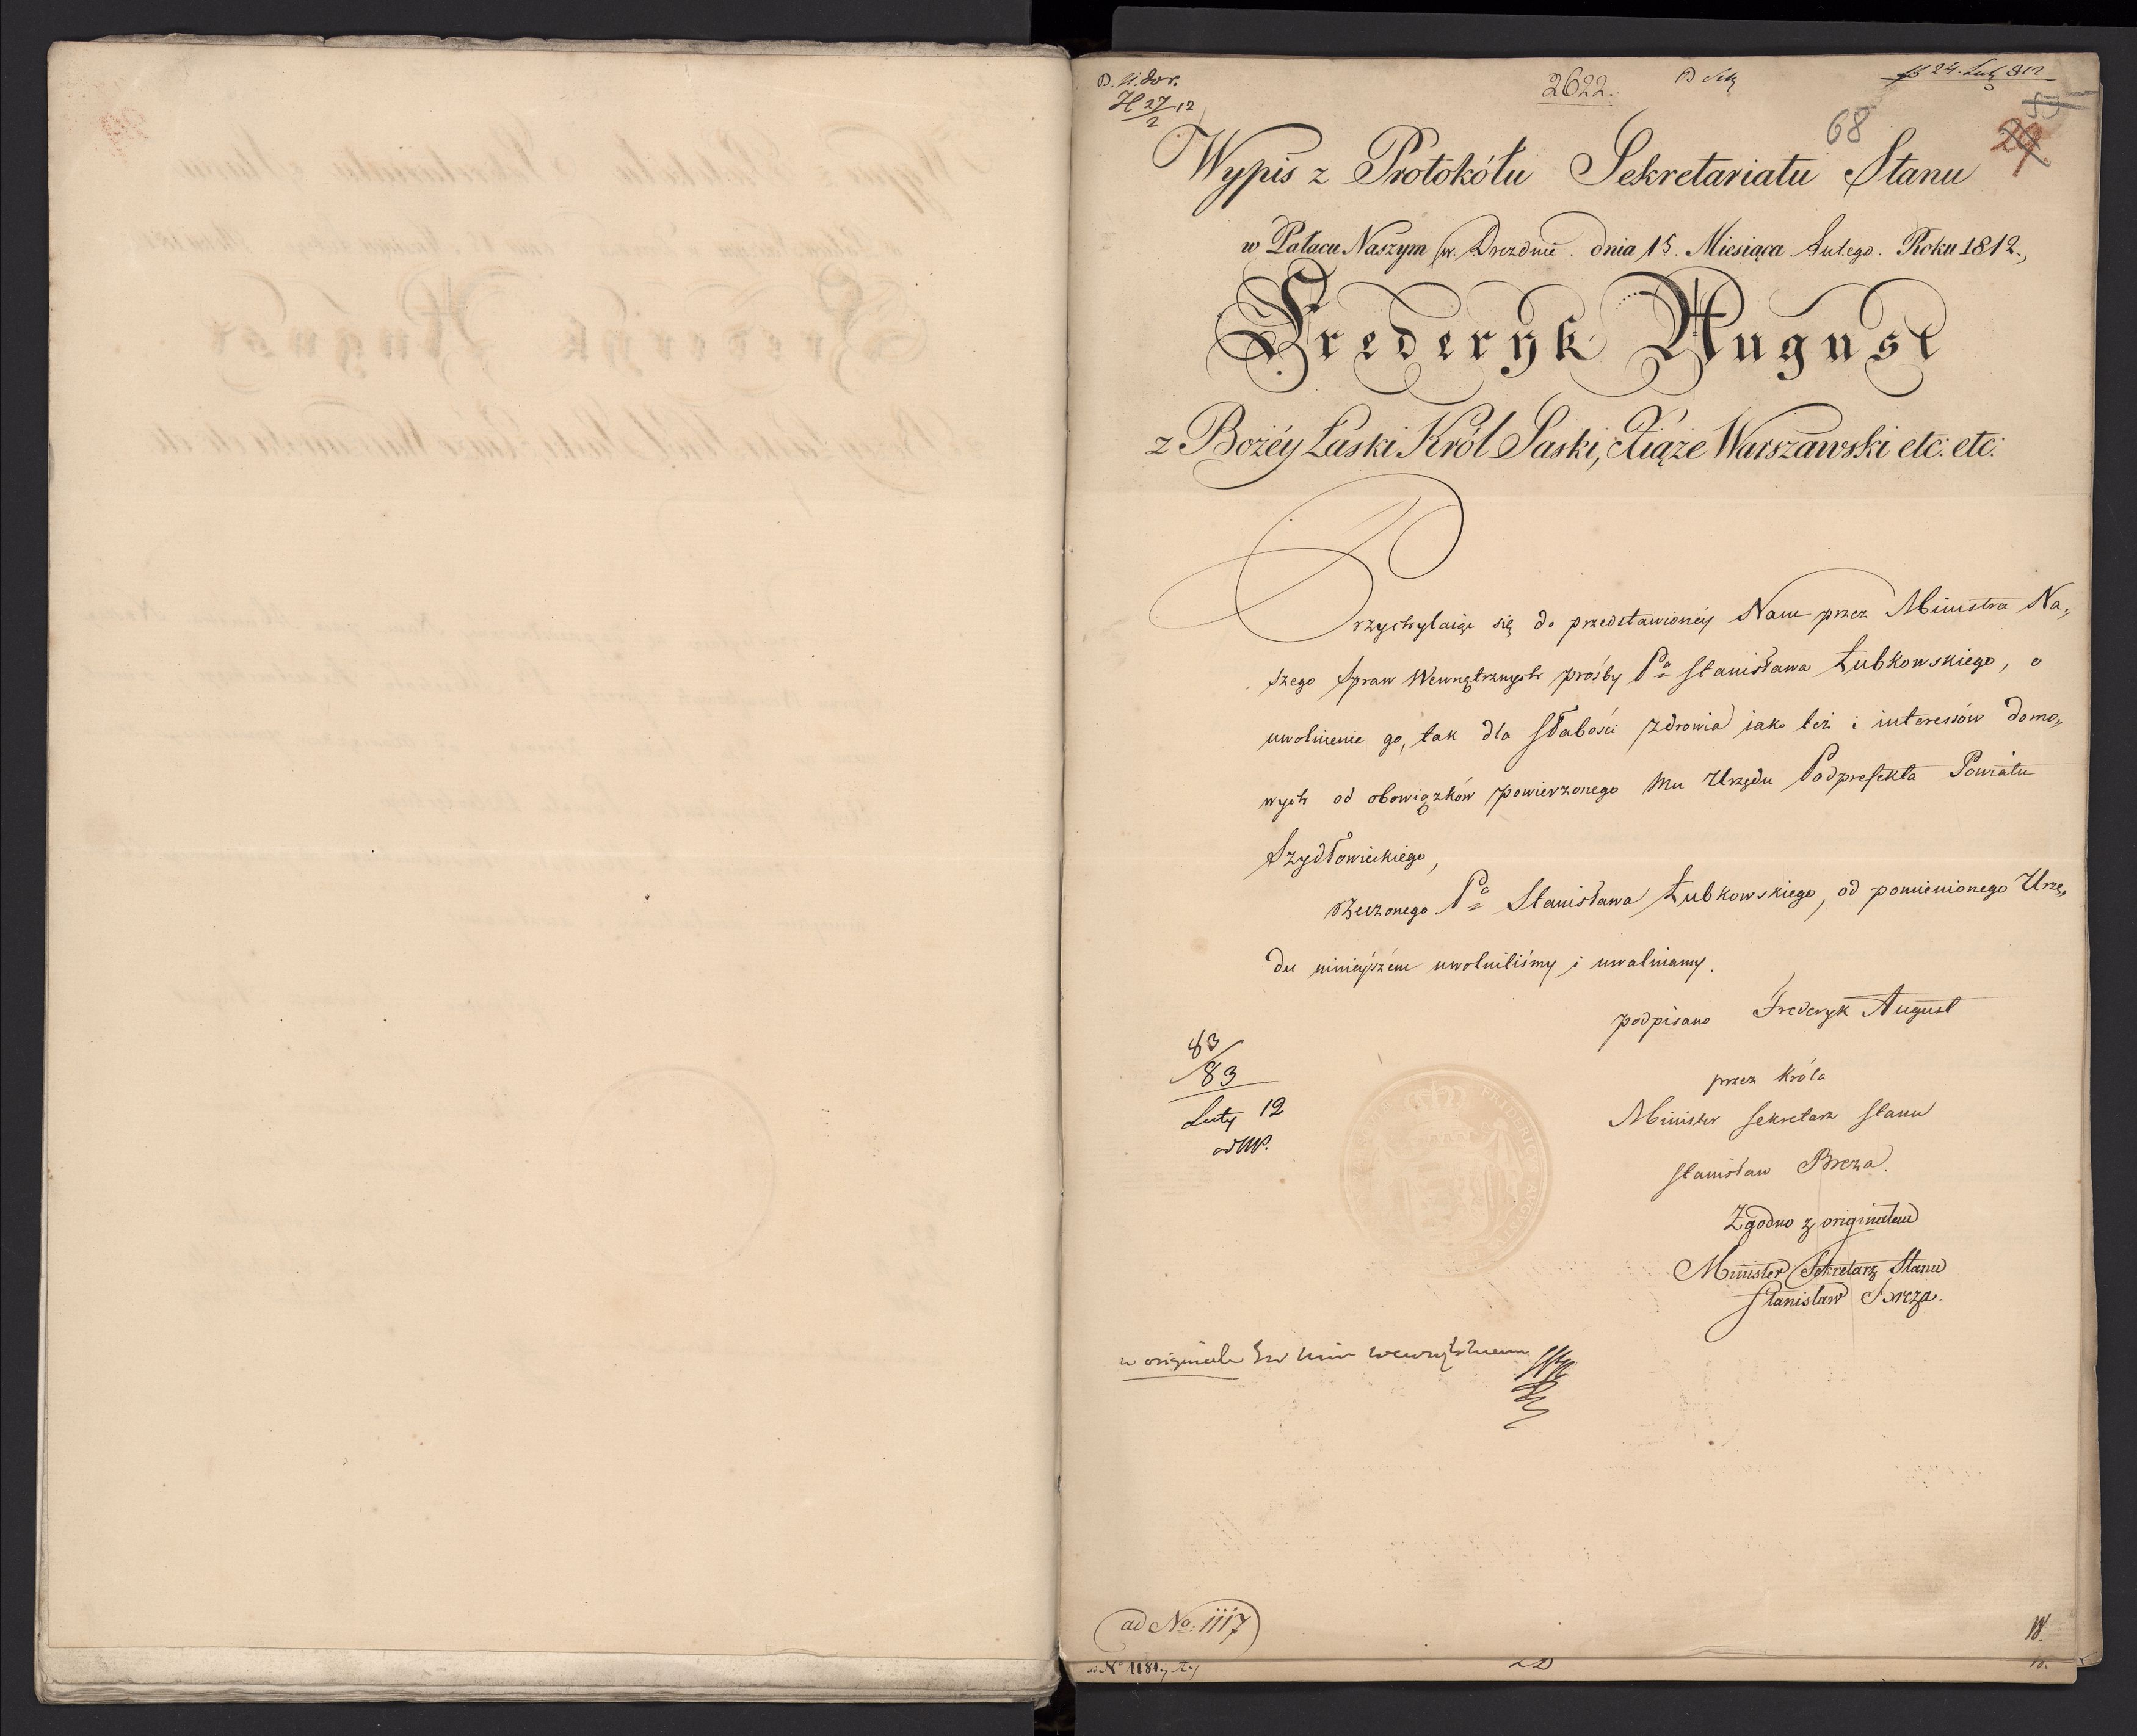 2622.
24. Lut. 812
27/2 12
68
29
Wypis z Protokółu Sekretariatu Stanu
w Pałacu Naszym w. Dreznie. dnia 15. Miesiąca Lutego. Roku 1812.,
Frederyk August
z Bożéy Łaski Król Saski, Xiąże Warszawski etc: etc:
Przychylaiąc się do przedstawionéy Nam przez Ministra Na„
szego Spraw Wewnętrznych prośby Pa Stanisława Łubkowskiego, o
uwolnienie go, tak dla słabości zdrowia iako też i interessów domo„
wych od obowiązków powierzonego mu Urzędu Podprefekta Powiatu
Szydłowieckiego,
rzeczonego Pa Stanisława Łubkowskiego, od pomienionego Urzę„
du ninieyszém uwolniliśmy i uwalniamy.
podpisano Frederyk August
83
przez Króla
Luty 12
Minister Sekretarz Stanu
Stanisław Breza.
Zgodno z originałem
Minister Sekretarz Stanu
Stanisław Breza.
w originale
ad No: 1117
18.
ad No 1181